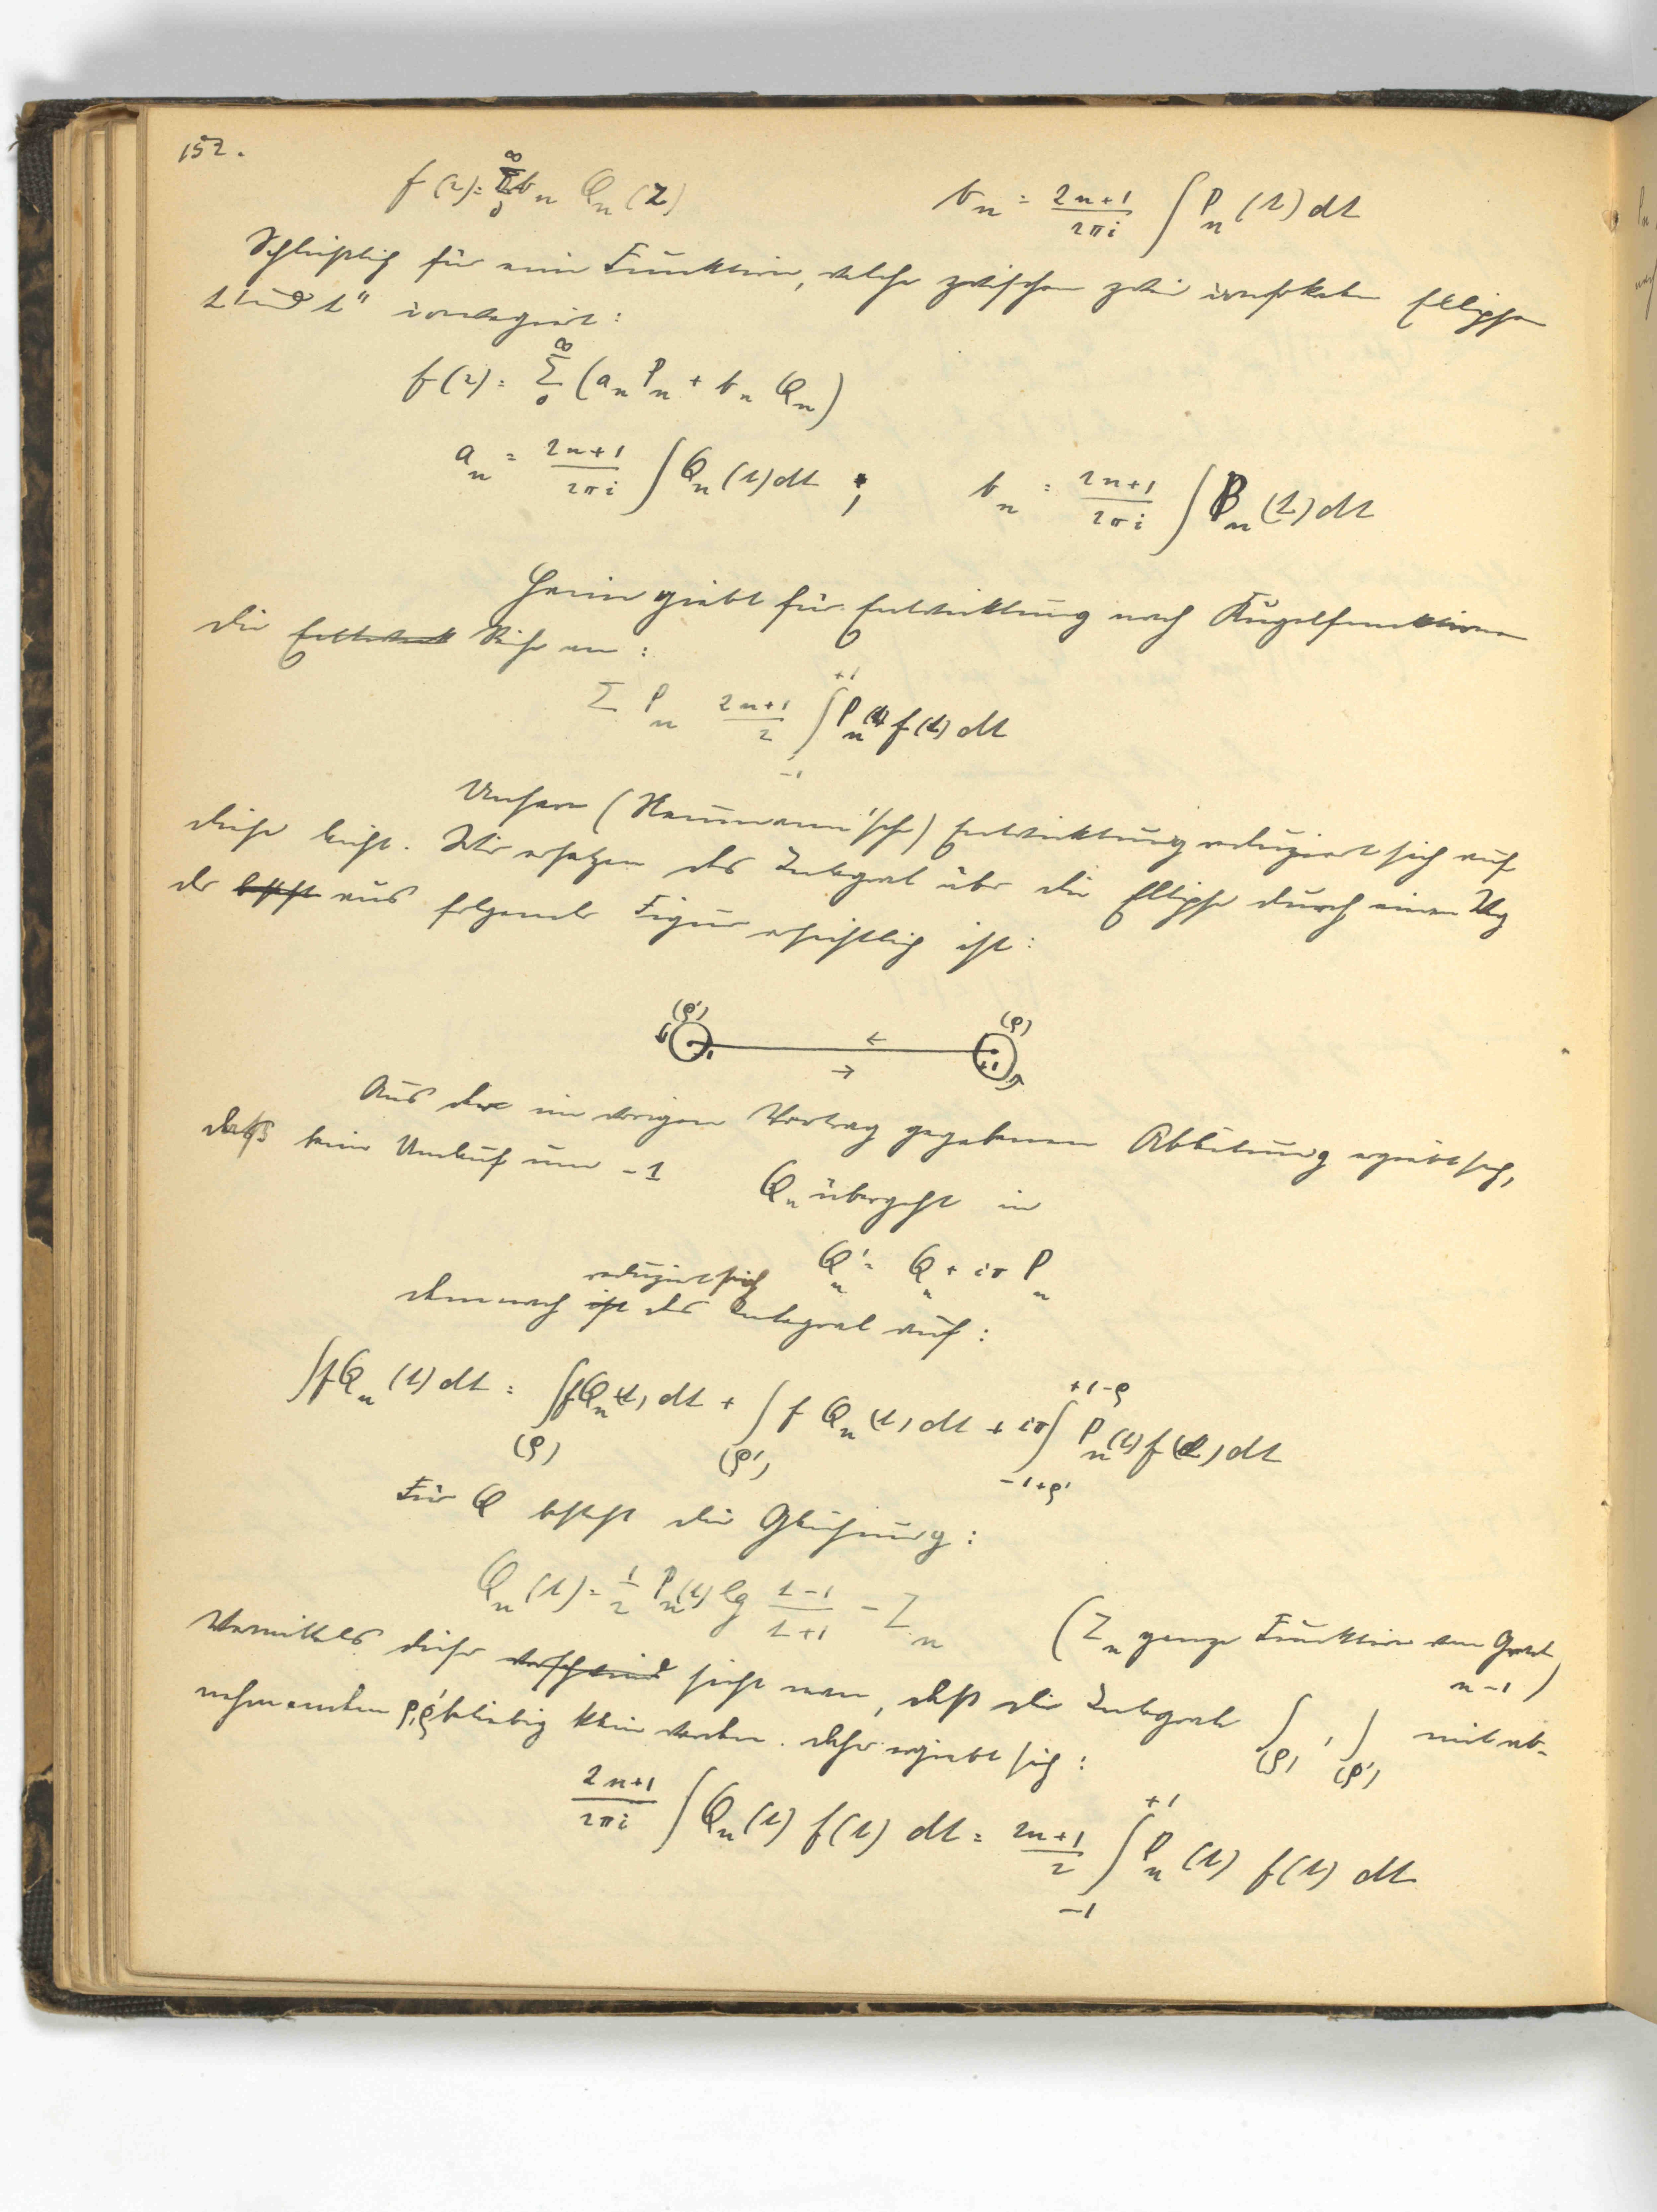 152.
f(z) = ∞Σ0 bn Qn(z)    bn = (2n+1)/(2πi) ∫ Pn(t) dt
Schließlich für eine Funktion, welche zwischen zwei confokalen Ellipsen
t' und t'' convergiert:
f(z) = ∞Σ0 (an Pn + bn Qn)
an = (2n+1)/(2πi) ∫ Qn(t) dt ;    bn = (2n+1)/(2πi) ∫ Pn(t) dt
Heine giebt für Entwicklung nach Kugelfunktionen
die Reihe an:
Σ Pn (2n+1)/2 ∫ -1 +1 Pn(t) f(t) dt
Unsere (Neumann'sche) Entwicklung reduziert sich auf
diese leicht. Wir ersetzen das Integral über die Ellipse durch einen Weg
der aus folgender Figur ersichtlich ist:
(ρ') (ρ)
← 
→
-1 +1
Aus der im vorigen Vortrag gegebenen Abbildung ergiebt sich,
daß beim Umlauf um -1 Qn übergeht in
Q'n = Qn + iπ Pn
demnach reduziert sich das Integral auf:
∫ f Qn(t) dt = ∫(ρ) f Qn(t) dt + ∫(ρ') f Qn(t) dt + iπ ∫ -1+ρ' +1-ρ Pn(t) f(t) dt
Für Q besteht die Gleichung:
Qn(t) = 1/2 Pn(t) lg (t-1)/(t+1) - Zn    (Zn ganze Funktion vom Grad
n-1)
Vermittels dieser sieht man, daß die Integrale ∫(ρ), ∫(ρ') mit ab-
nehmenden ρ, ρ' beliebig klein werden. Daher ergiebt sich:
(2n+1)/(2πi) ∫ Qn(t) f(t) dt = (2n+1)/2 ∫ -1 +1 Pn(t) f(t) dt